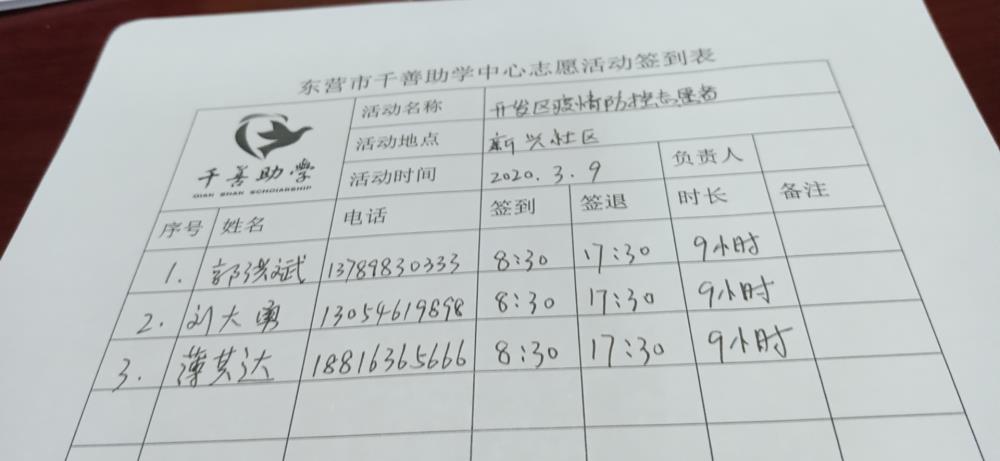 东营市千善助学中心志愿活动签到表
千善助学
QIAN SHAN SCHOLARSHIP
活动名称 开发区疫情防控志愿者
活动地点 新兴社区
活动时间 2020.3.9 负责人
序号 姓名 电话 签到 签退 时长 备注
1. 郭洪斌 13789830333 8:30 17:30 9小时
2. 刘大勇 13054619898 8:30 17:30 9小时
3. 薄其达 18816365666 8:30 17:30 9小时